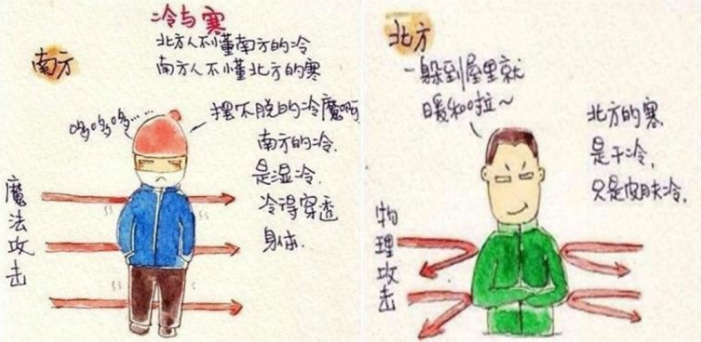 冷与寒
北方人不懂南方的冷
南方人不懂北方的寒
南方
哆哆哆……
摆不脱的冷魔啊
南方的冷.
是湿冷.
冷得穿透
身体.
魔法攻击
北方
一躲到屋里就
暖和啦～
北方的寒
是干冷,
只是皮肤冷.
物理攻击